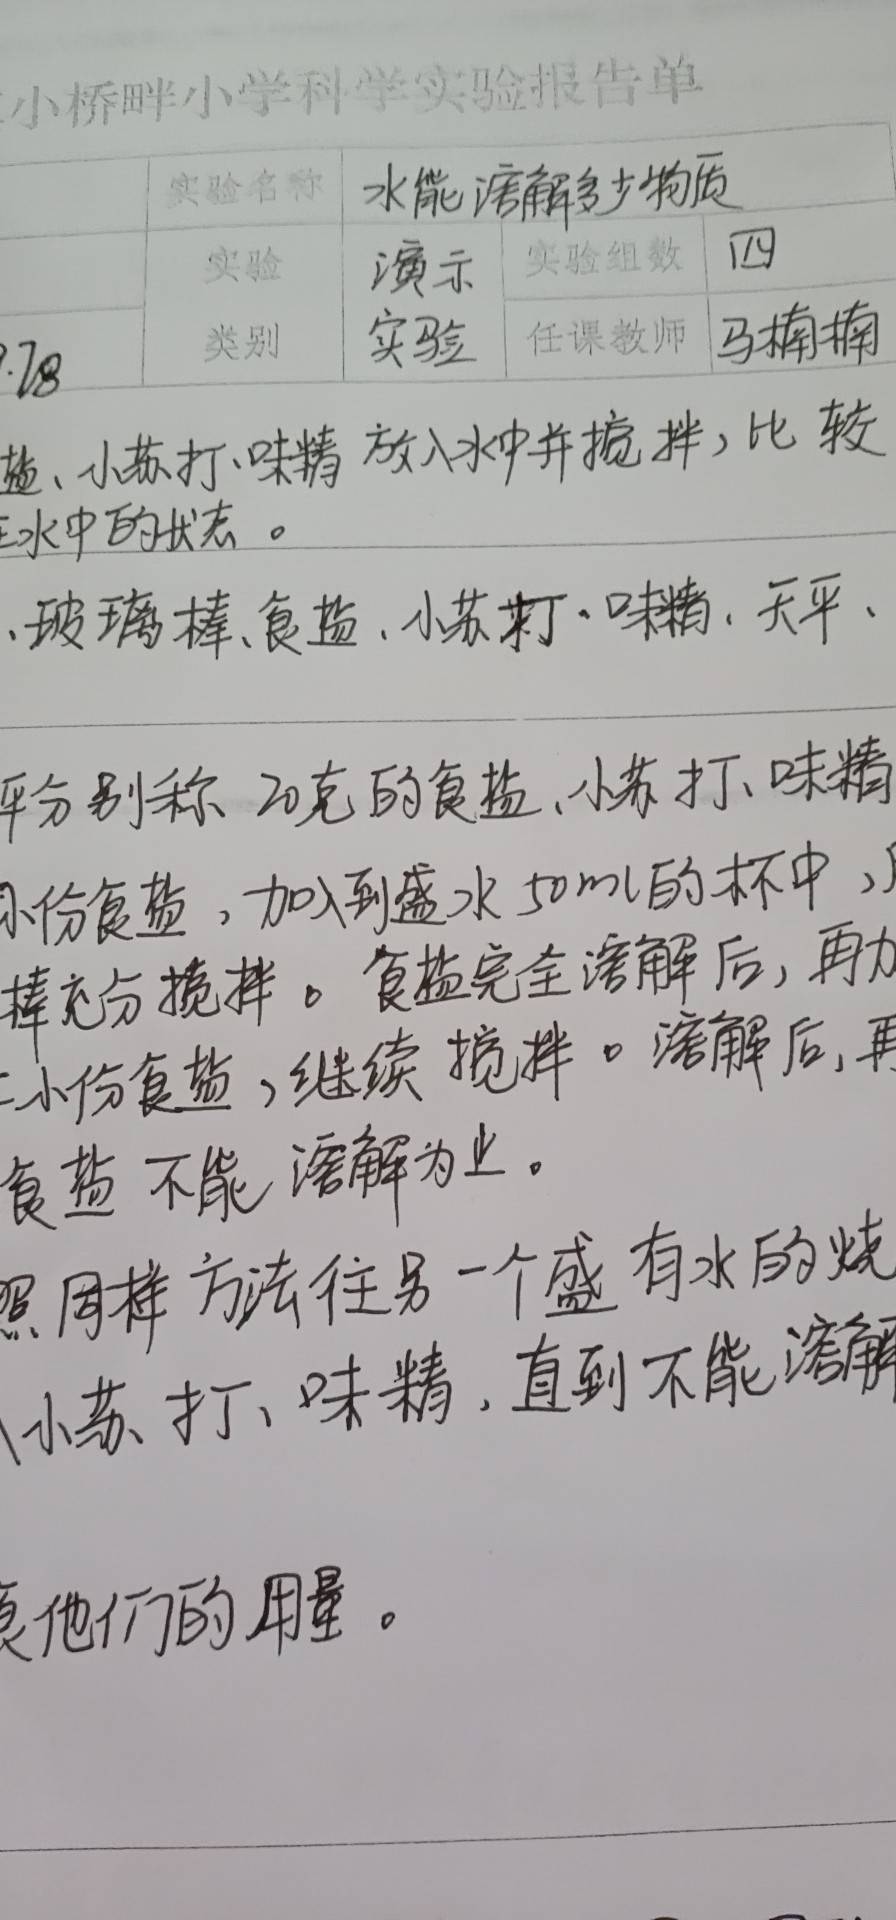 小桥畔小学科学实验报告单
实验名称 水能溶解多少物质
实验类别 演示实验 实验组数 四
任课教师 马楠楠
.28
盐、小苏打、味精放入水中并搅拌，比较
在水中的状态。
、玻璃棒、食盐、小苏打、味精、天平、
平分别称20克的食盐、小苏打、味精
小份食盐，加入到盛水50ml的杯中，
棒充分搅拌。食盐完全溶解后，再加
二小份食盐，继续搅拌。溶解后，再
食盐不能溶解为止。
照同样方法往另一个盛有水的烧
入小苏打、味精，直到不能溶解
他们的用量。